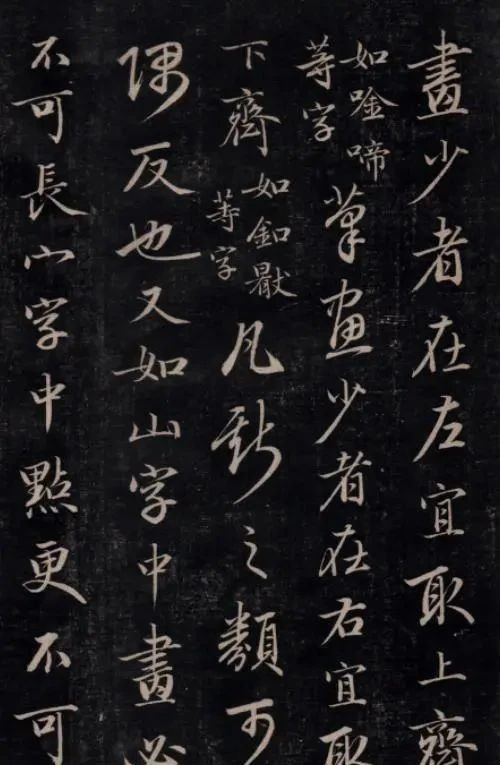 畫少者在左宜取上齊
如唫啼
等字
筆画少者在右宜取
下齊
如釦
等字
凡斯之類可
隅反也又如山字中畫必
不可長宀字中點更不可